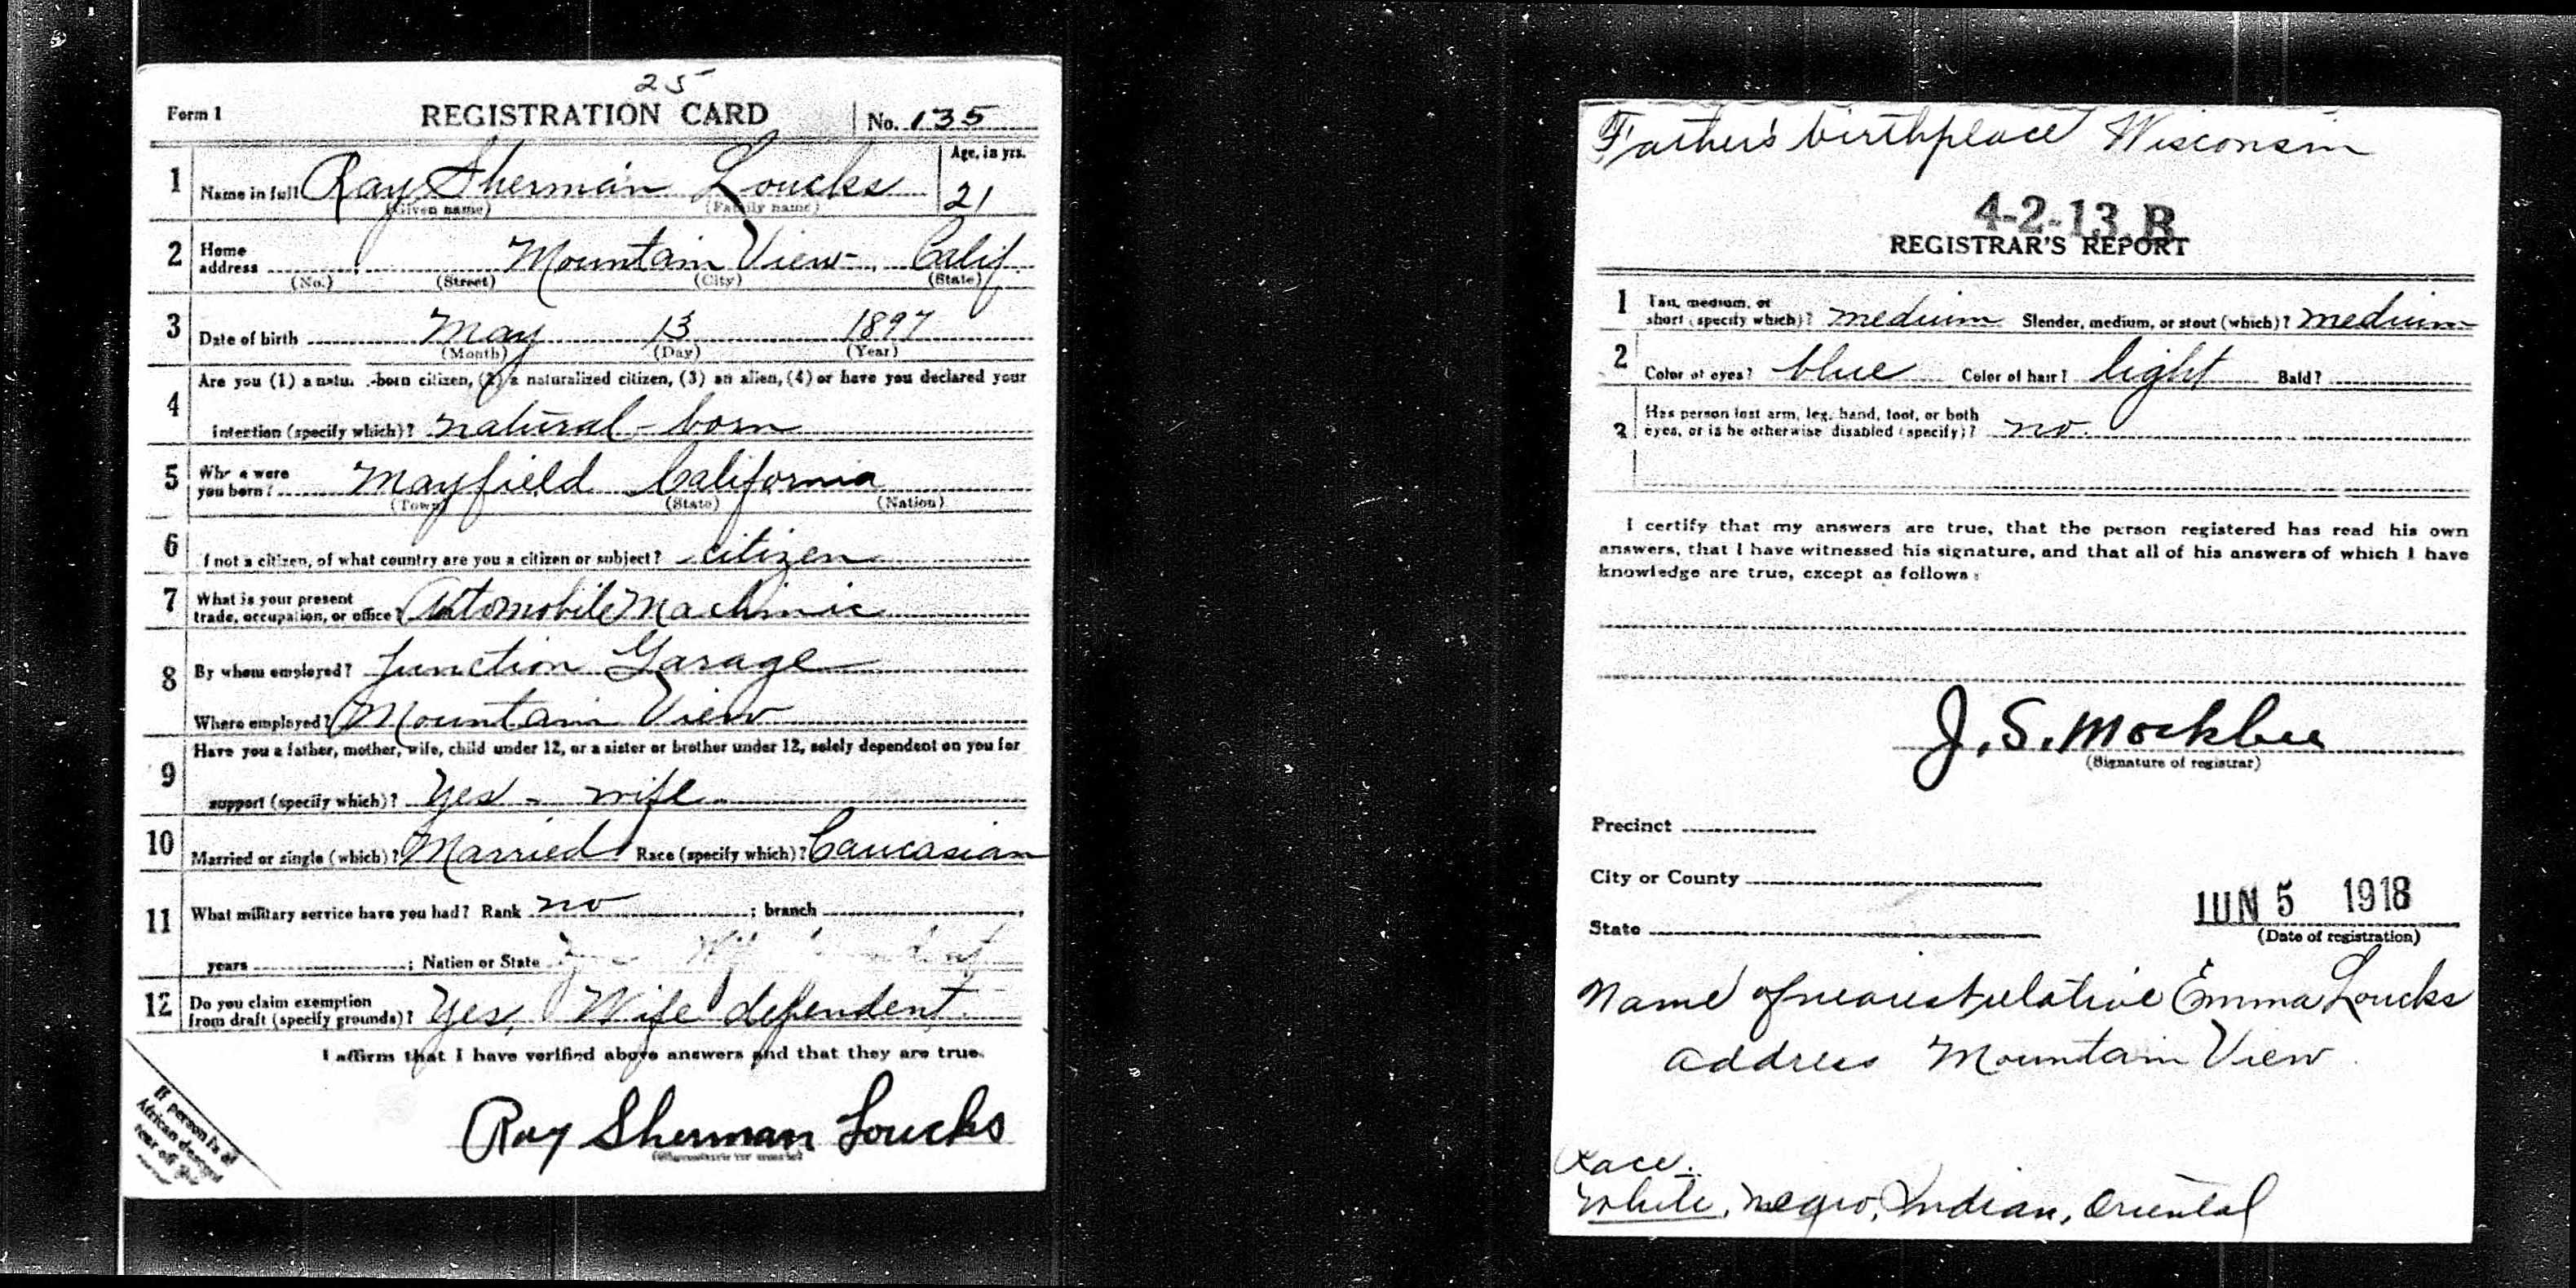 25
Form 1 REGISTRATION CARD No. 135
1 Name in full Ray Sherman Loucks Age, in yrs. 21
(Given name) (Family name)
2 Home address Mountain View - Calif
(No.) (Street) (City) (State)
3 Date of birth May 13 1897
(Month) (Day) (Year)
4 Are you (1) a natu -born citizen, (2) a naturalized citizen, (3) an alien, (4) or have you declared your
intention (specify which)? natural-born
5 Where were you born? Mayfield California
(Town) (State) (Nation)
6 I not a citizen, of what country are you a citizen or subject? citizen
7 What is your present trade, occupation, or office? Automobile Machinic
8 By whom employed? Junction Garage
Where employed? Mountain View
9 Have you a father, mother, wife, child under 12, or a sister or brother under 12, solely dependent on you for
support (specify which)? Yes - wife
10 Married or single (which)? Married Race (specify which)? Caucasian
11 What military service have you had? Rank no ; branch
years ; Nation or State
12 Do you claim exemption from draft (specify grounds)? Yes, Wife dependent
I affirm that I have verified above answers and that they are true.
Ray Sherman Loucks
(Signature or mark)
If person is of
African descent
tear off
Father's birthplace Wisconsin
4-2-13. B
REGISTRAR'S REPORT
1 Tall, medium, or short (specify which)? medium Slender, medium, or stout (which)? medium
2 Color of eyes? blue Color of hair? light Bald?
3 Has person lost arm, leg, hand, foot, or both eyes, or is he otherwise disabled (specify)? no.
I certify that my answers are true, that the person registered has read his own
answers, that I have witnessed his signature, and that all of his answers of which I have
knowledge are true, except as follows:
J. S. Mockbee
(Signature of registrar)
Precinct
City or County
State
JUN 5 1918
(Date of registration)
Name of nearest relative Emma Loucks
address Mountain View
Race.
White, Negro, Indian, Oriental